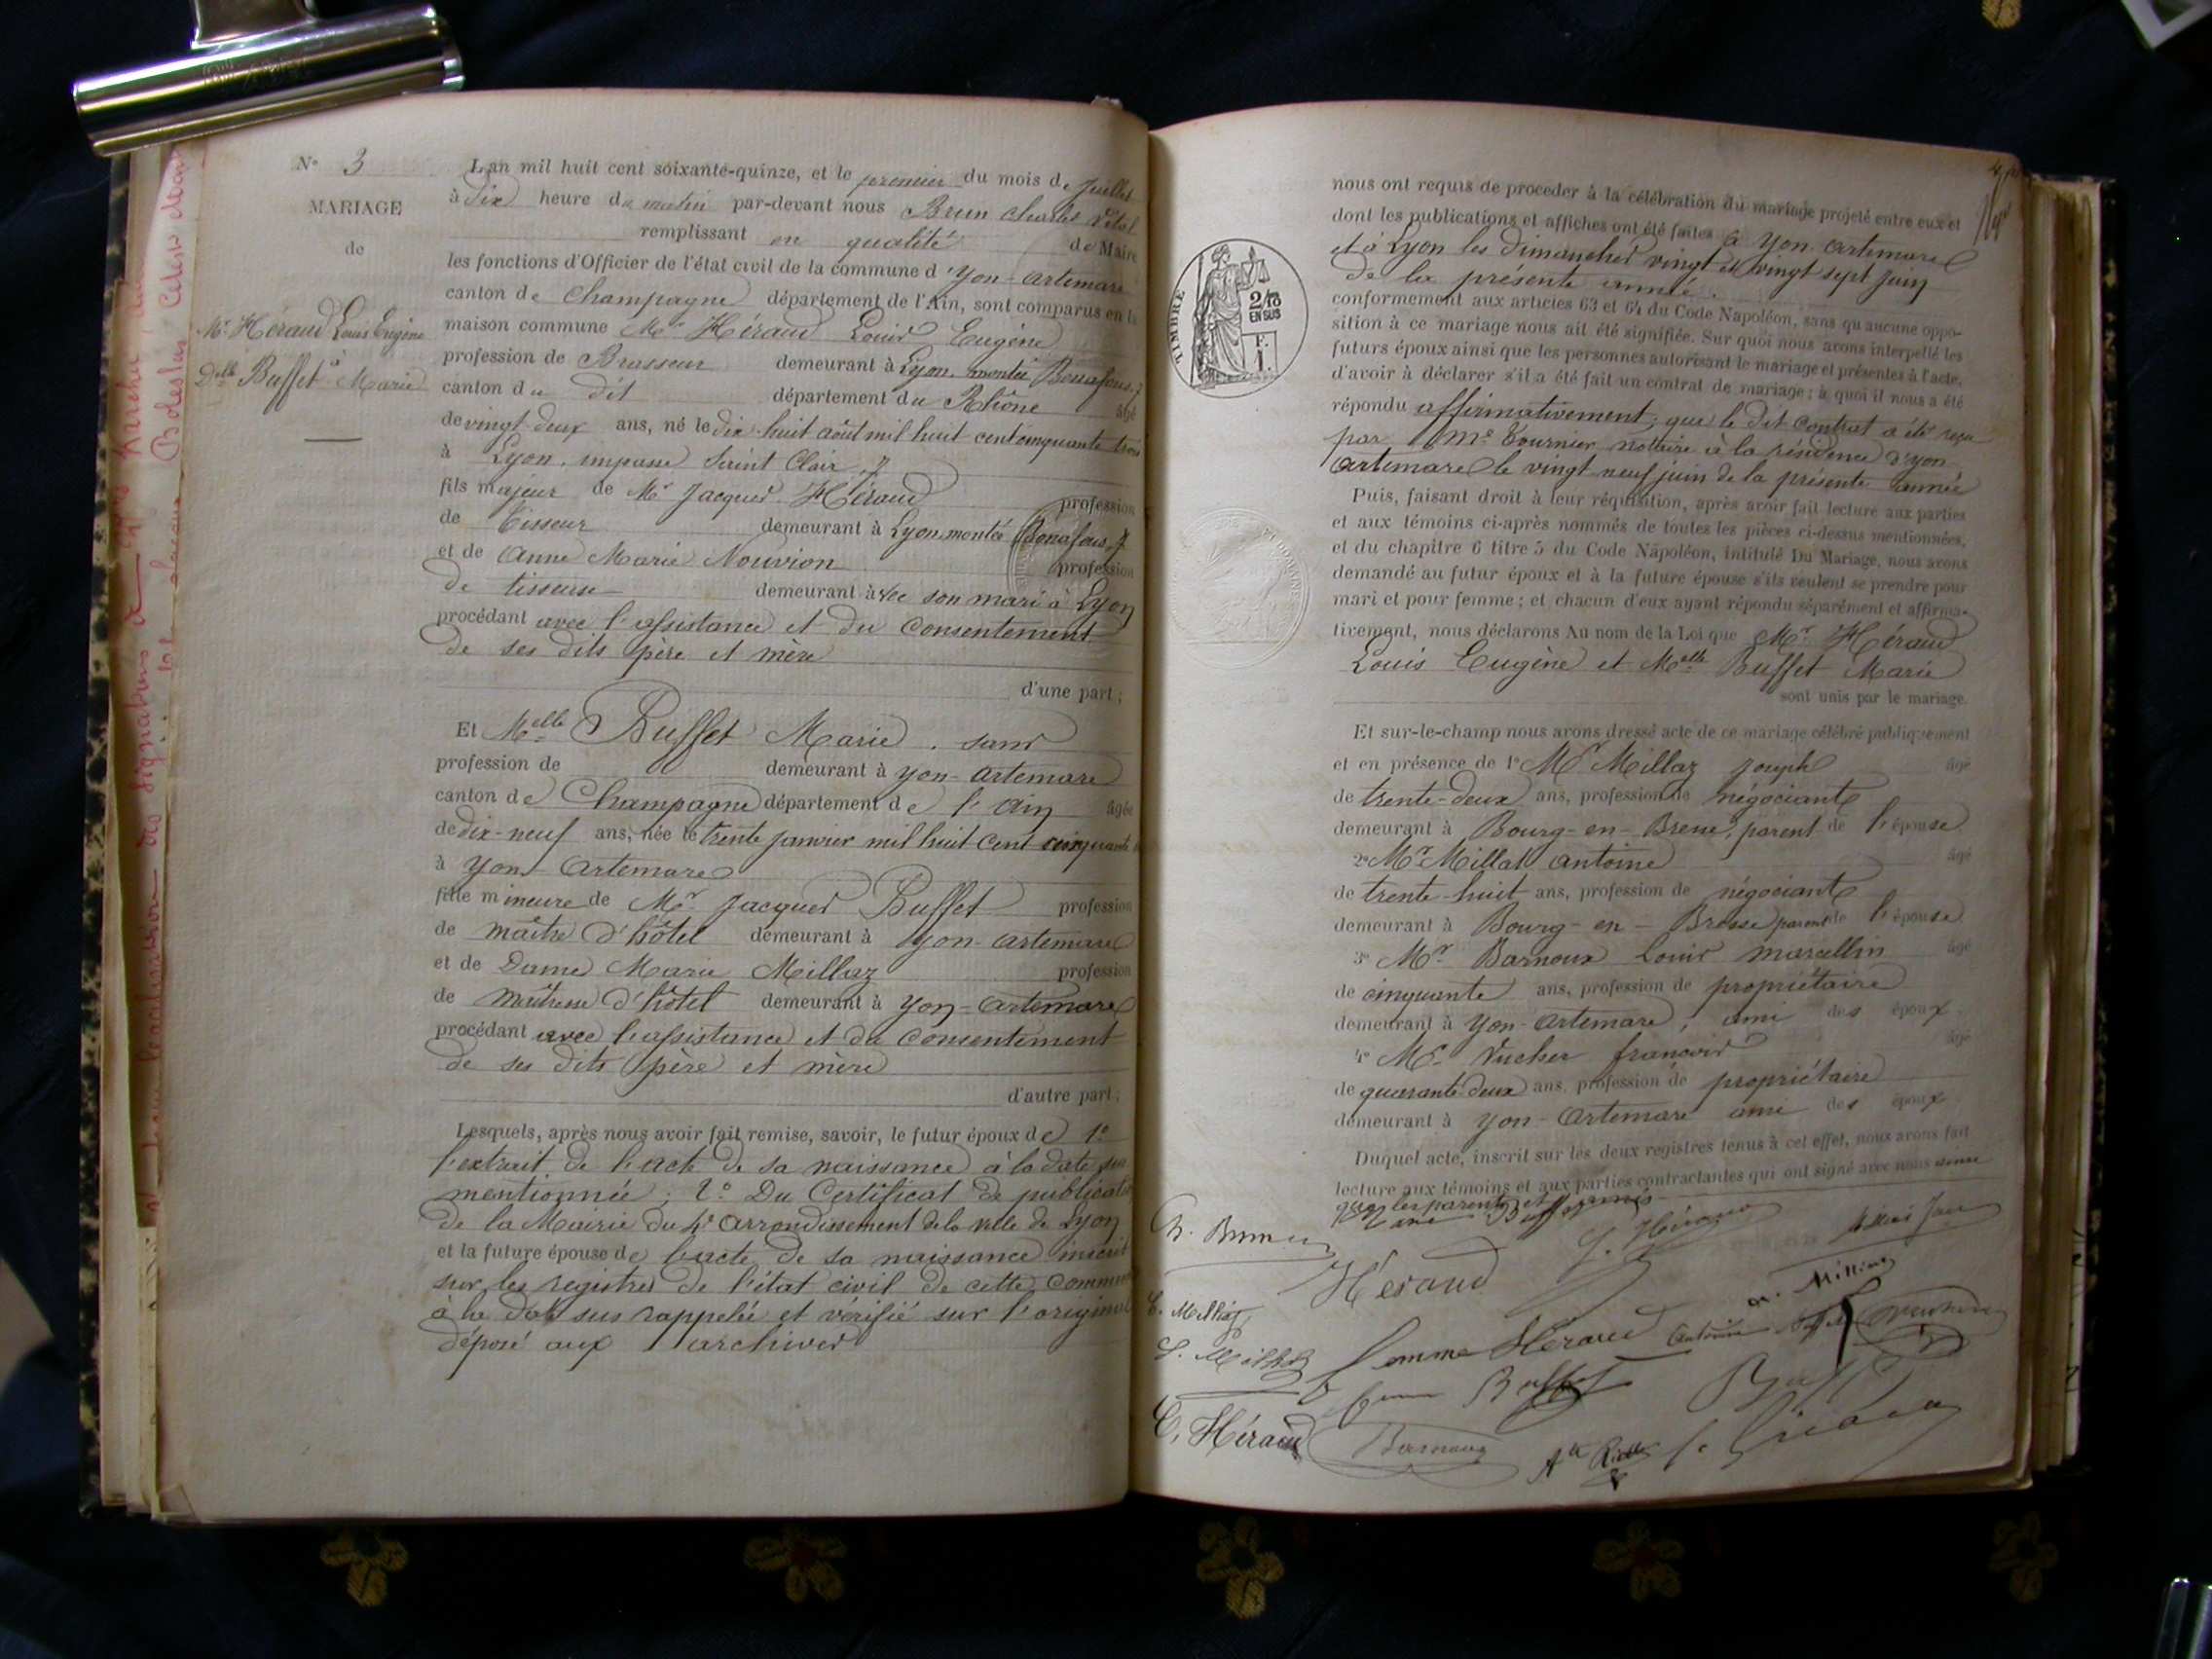 N° 3
MARIAGE
de
Mr Héraud Louis Eugène
à
Delle Buffet Marie
L'an mil huit cent soixante-quinze, et le premier du mois de Juillet
à dix heure du matin par-devant nous Brun Charles Vital
remplissant en qualité de Maire
les fonctions d'Officier de l'état civil de la commune d'Yon-Artemare
canton de Champagne département de l'Ain, sont comparus en la
maison commune Mr Héraud Louis Eugène
profession de Brasseur demeurant à Lyon, montée Bonafous, 7
canton du dit département du Rhône âgé
de vingt-deux ans, né le dix-huit août mil huit cent cinquante trois
à Lyon, impasse Saint Clair, 7
fils majeur de Mr Jacques Héraud profession
de Tisseur demeurant à Lyon montée Bonafous, 7
et de Anne Marie Nouvion profession
de tisseuse demeurant avec son mari à Lyon
procédant avec l'assistance et du consentement
de ses dits père et mère
d'une part;
Et Melle Buffet Marie, sans
profession de demeurant à Yon-Artemare
canton de Champagne département de l'Ain âgée
de dix-neuf ans, née le trente janvier mil huit cent cinquante
à Yon-Artemare
fille mineure de Mr Jacques Buffet profession
de maître d'hôtel demeurant à Yon-Artemare
et de Dame Marie Millaz profession
de maîtresse d'hôtel demeurant à Yon-Artemare
procédant avec l'assistance et du consentement
de ses dits père et mère
d'autre part;
Lesquels, après nous avoir fait remise, savoir, le futur époux de 1°
l'extrait de l'acte de sa naissance à la date sus
mentionnée; 2° Du Certificat de publication
de la Mairie du 4e arrondissement de la ville de Lyon
et la future épouse de l'acte de sa naissance inscrit
sur les registres de l'état civil de cette commune
à la date sus rappelée et vérifié sur l'original
déposé aux archives
nous ont requis de procéder à la célébration du mariage projeté entre eux et
dont les publications et affiches ont été faites à Yon-Artemare
et à Lyon les dimanches vingt et vingt sept juin
de la présente année.
conformément aux articles 63 et 64 du Code Napoléon, sans qu'aucune oppo-
sition à ce mariage nous ait été signifiée. Sur quoi nous avons interpellé les
futurs époux ainsi que les personnes autorisant le mariage et présentes à l'acte,
d'avoir à déclarer s'il a été fait un contrat de mariage; à quoi il nous a été
répondu affirmativement, que le dit contrat a été reçu
par Me Tournier nottaire à la résidence d'Yon
Artemare le vingt neuf juin de la présente année
Puis, faisant droit à leur réquisition, après avoir fait lecture aux parties
et aux témoins ci-après nommés de toutes les pièces ci-dessus mentionnées,
et du chapitre 6 titre 5 du Code Napoléon, intitulé Du Mariage, nous avons
demandé au futur époux et à la future épouse s'ils veulent se prendre pour
mari et pour femme; et chacun d'eux ayant répondu séparément et affirma-
tivement, nous déclarons Au nom de la Loi que Mr Héraud
Louis Eugène et Melle Buffet Marie
sont unis par le mariage.
Et sur-le-champ nous avons dressé acte de ce mariage célébré publiquement
et en présence de 1° Mr Millaz Joseph âgé
de trente-deux ans, profession de négociant
demeurant à Bourg-en-Bresse, parent de l'épouse
2° Mr Millat Antoine âgé
de trente-huit ans, profession de négociant
demeurant à Bourg-en-Bresse parent de l'épouse
3° Mr Barnoux Louis Marcellin âgé
de cinquante ans, profession de propriétaire
demeurant à Yon-Artemare, ami des époux
4° Mr Vucher françois âgé
de quarante-deux ans, profession de propriétaire
demeurant à Yon-Artemare ami des époux
Duquel acte, inscrit sur les deux registres tenus à cet effet, nous avons fait
lecture aux témoins et aux parties contractantes qui ont signé avec nous ainsi
que les parents et amis
TIMBRE
2/10
EN SUS
F.
1.
Héraud
J. Héraud
femme Héraud
femme Buffet
C. Héraud
Barnoux